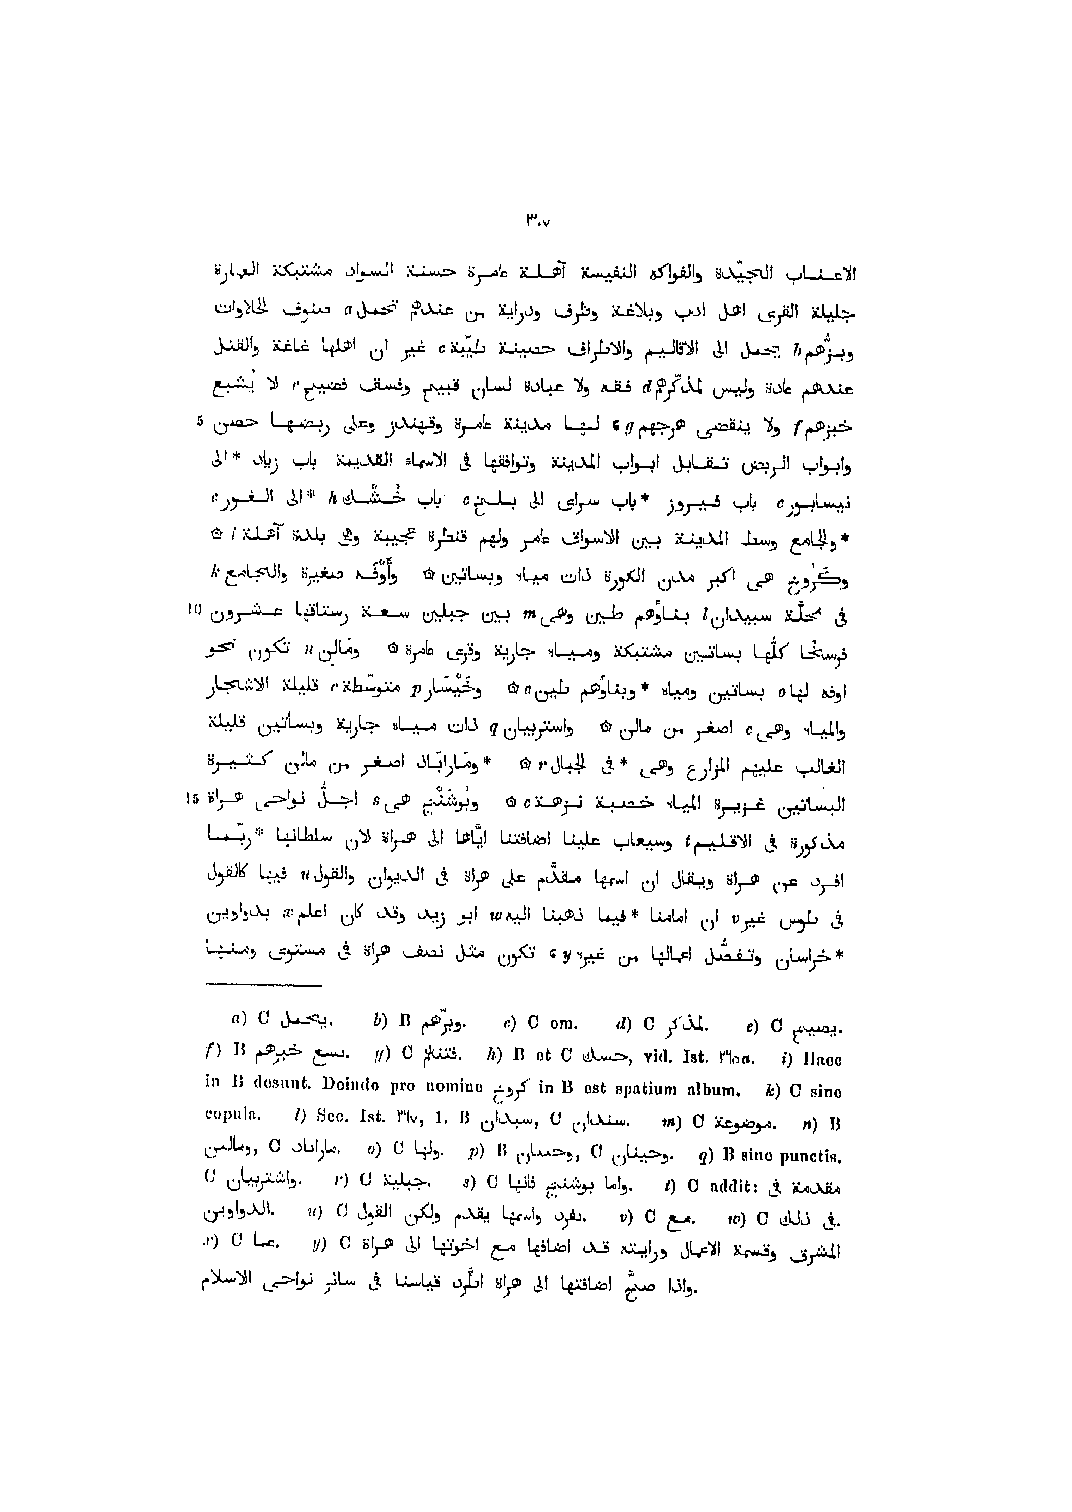 ٣٠٧
الاعناب الجيّدة والفواكه النفيسة آهلة عامرة حسنة السواد مشتبكة العمارة
جليلة القرى اهل ادب وبلاغة وظرف ودراية من عندهم تحمل a صنوف الحلاوات
وبزّهم b يحمل الى الاقاليم والاطراف حصينة طيّبة c غير ان اهلها غاغة والقتل
عندهم عادة وليس لمذكّرهم d فقه ولا عبادة لسان قبيح وفسق فضيح e لا يُشبع
5 خبزهم f ولا ينقضى هرجهم g ۵ لها مدينة عامرة وقهندز وعلى ربضها حصن
وابواب الربض تقابل ابواب المدينة وتوافقها فى الاسماء القديمة باب زياد *الى
نيسابور c باب فيروز *باب سراى الى بلخ c باب خُشْك h *الى الغور c
*والجامع وسط المدينة بين الاسواق عامر ولهم قنطرة عجيبة وهى بلدة آهلة i ۵
وكَرُوخ هى اكبر مدن الكورة ذات مياه وبساتين ۵ وأُوفَه صغيرة والجامع k
10 فى محلّة سبيدان l بناؤهم طين وهى m بين جبلين سعة رستاقها عشرون
فرسخا كلّها بساتين مشتبكة ومياه جارية وقرى عامرة ۵ ومَالِن n تكون نحو
اوفه لها o بساتين ومياه *وبناؤهم طين c ۵ وخَيْسَار p متوسّطة c قليلة الاشجار
والمياه وهى c اصغر من مالن ۵ واستربيان q ذات مياه جارية وبساتين قليلة
الغالب عليهم المزارع وهى *فى الجبال r ۵ *ومَارَابَاذ اصغر من مالن كثيرة
15 البساتين غزيرة المياه خصبة نزهة c ۵ وبُوشَنْج هى s اجلّ نواحى هراة
مذكورة فى الاقليم t وسيعاب علينا اضافتنا ايّاها الى هراة لان سلطانها *ربّما
افرد عن هراة ويقال ان اسمها مقدّم على هراة فى الديوان والقول u فيها كالقول
فى طوس غير v ان امامنا *فيما ذهبنا اليه w ابو زيد وقد كان اعلم x بدواوين
*خراسان وتفضّل اعمالها من غيره y ۵ تكون مثل نصف هراة فى مستوى ومنها
a) C يحمل. b) B وبرّهم. c) C om. d) C لمذكر. e) C يصيح.
f) B يسع خبرهم. g) C فتنتهم. h) B et C حسك, vid. Ist. ٢٦٥a. i) Haec
in B desunt. Deinde pro nomine كروخ in B est spatium album. k) C sine
copula. l) Sec. Ist. ٢٦٧, 1. B سيدان, C سندان. m) C موضوعة. n) B
وملين, C ماراباذ. o) C ولها. p) B وحسان, C وحينان. q) B sine punctis.
C واشتربيان. r) C جبلية. s) C واما بوشنج فانها. t) C addit: مقدمة فى
الدواوين. u) C نفرد واسمها يقدم ولكن القول. v) C مع. w) C فى ذلك.
x) C عما. y) C المشرق وقسمة الاعمال ورايته قد اضافها مع اخوتها الى هراة
واذا صحّ اضافتها الى هراة اطّرد قياسنا فى سائر نواحى الاسلام.